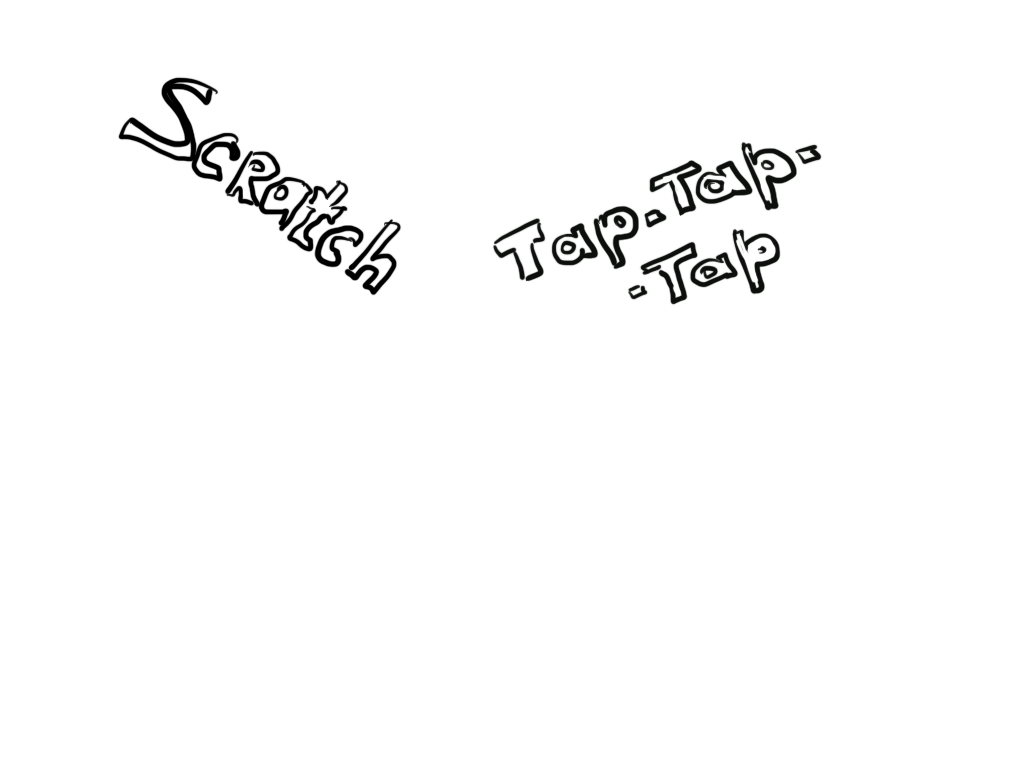 Scratch
Tap-Tap-
-Tap